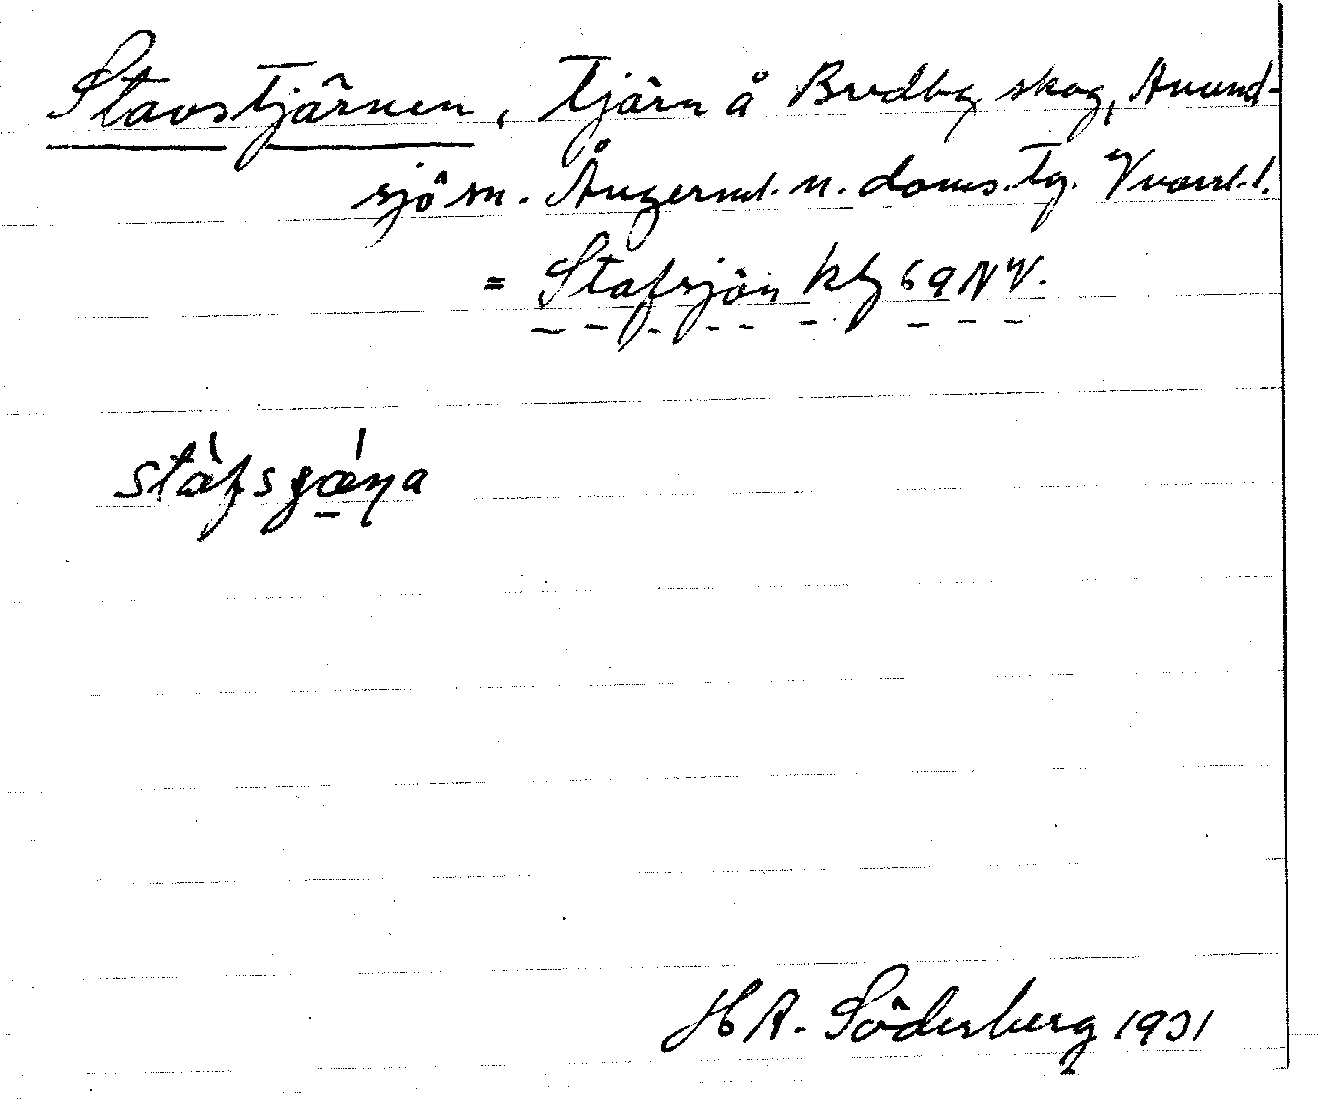 Stavstjärnen, tjärn å Bredbg skog, Anund-
sjö sn. Ångerml. n. doms. tg. Vnorrl. l.
= Stafsjön kbl 69 NV.
stàfsɟǽṇa
H A. Söderberg 1931